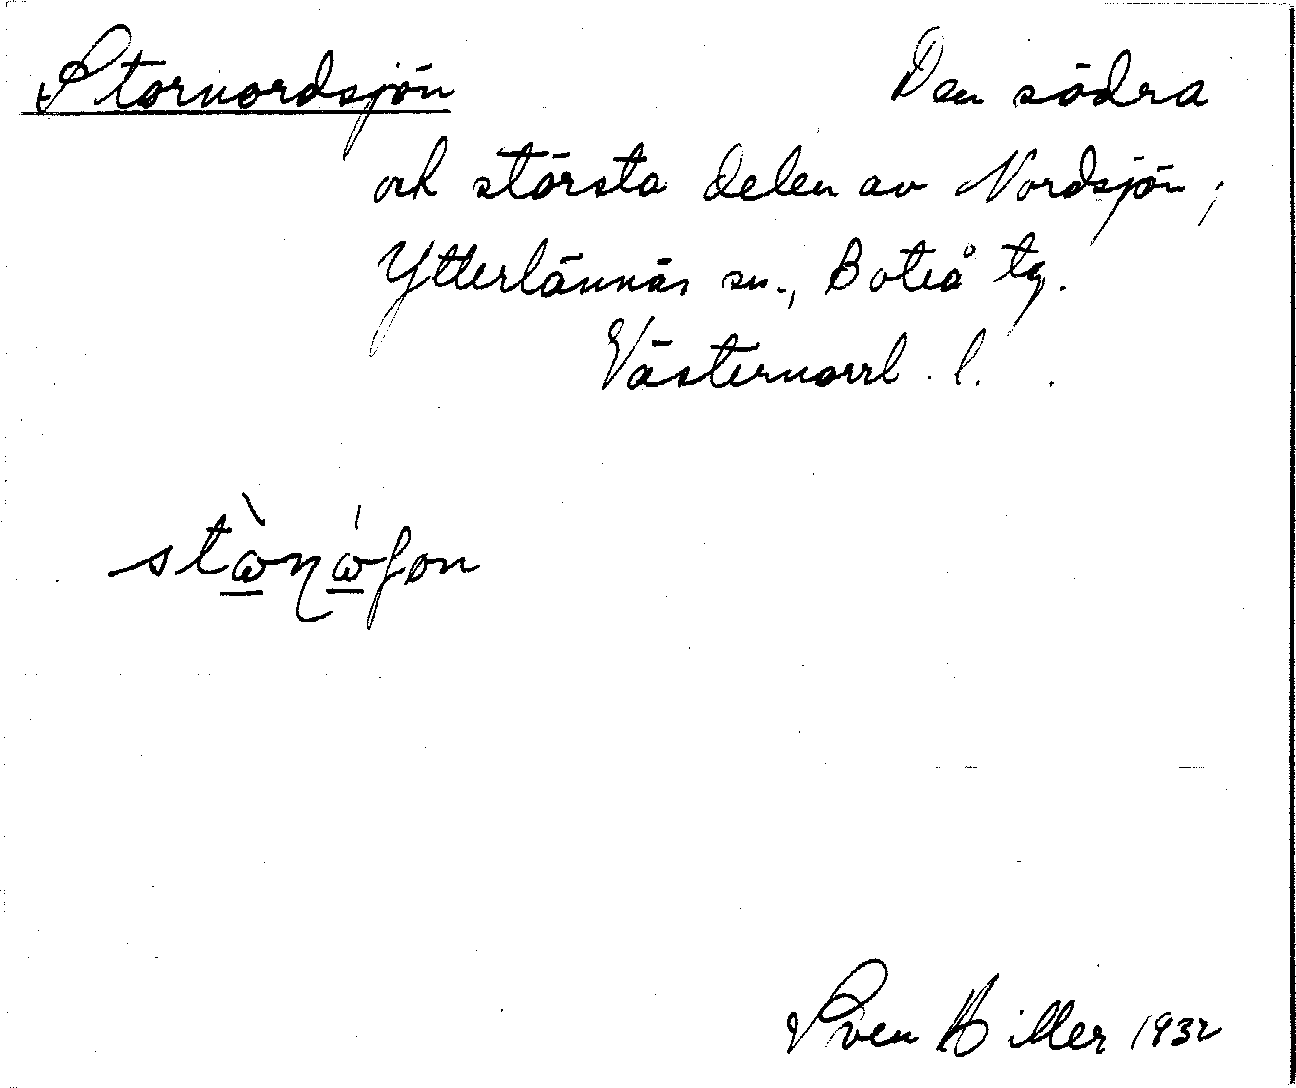 Stornordsjön Den södra
och största delen av Nordsjön,
Ytterlännäs sn., Boteå tg.
Västernorrl. l.
Sven Hiller 1932